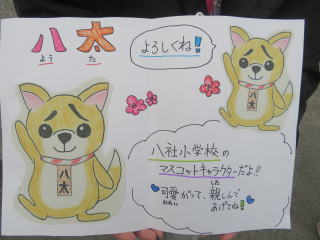 八太
ようた
よろしくね!!
八太
八太
八社小学校の
マスコットキャラクターだよ!!
可愛がって、親しんで
かわい した
あげてね!